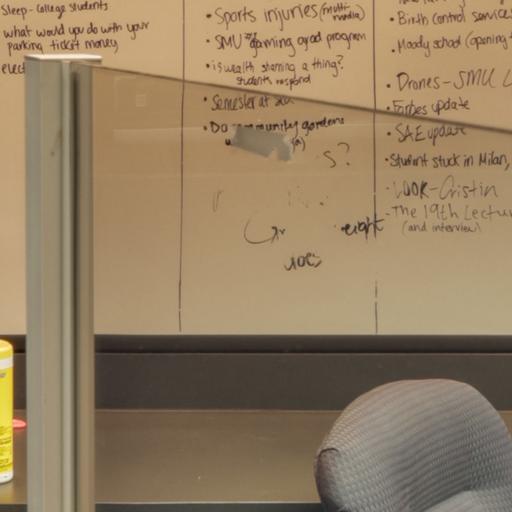 Sleep - College students
what would you do with your
parking ticket money
elect
• Sports injuries (multi
media)
• SMU gaming grad program
• is wealth shaming a thing?
students respond
• Semester at
• Do community gardens
S?
eight
• Birth control services
• Moody school (opening
• Drones - SMU
• Forbes update
• SAE update
• Student stuck in Milan,
• LOOK - Cristin
- The 19th Lectur
(and interview)